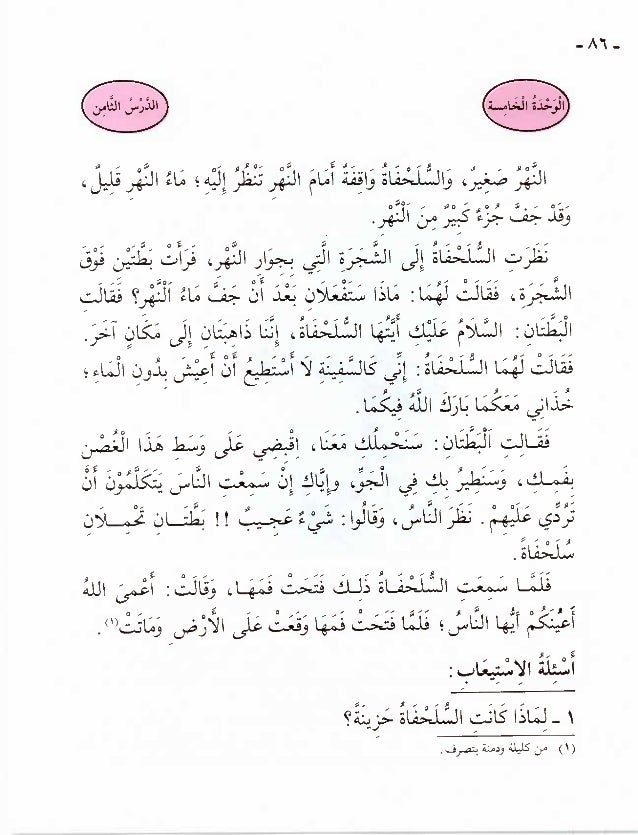 - ٨٦ -
الْوَحْدَةُ الْخَامِسَة
الدَّرْسُ الثَّامِن
النَّهْرُ صَغِيرٌ، وَالسُّلَحْفَاةُ وَاقِفَةٌ أَمَامَ النَّهْرِ تَنْظُرُ إِلَيْهِ؛ مَاءُ النَّهْرِ قَلِيلٌ،
وَقَدْ جَفَّ جُزْءٌ كَبِيرٌ مِنَ النَّهْرِ.
نَظَرَتِ السُّلَحْفَاةُ إِلَى الشَّجَرَةِ الَّتِي بِجِوَارِ النَّهْرِ، فَرَأَتْ بَطَّتَيْنِ فَوْقَ
الشَّجَرَةِ، فَقَالَتْ لَهُمَا: مَاذَا سَتَفْعَلَانِ بَعْدَ أَنْ جَفَّ مَاءُ النَّهْرِ؟ فَقَالَتِ
الْبَطَّتَانِ: السَّلَامُ عَلَيْكِ أَيَّتُهَا السُّلَحْفَاةُ، إِنَّنَا ذَاهِبَتَانِ إِلَى مَكَانٍ آخَرَ.
فَقَالَتْ لَهُمَا السُّلَحْفَاةُ: إِنِّي كَالسَّفِينَةِ لَا أَسْتَطِيعُ أَنْ أَعِيشَ بِدُونِ الْمَاءِ؛
خُذَانِي مَعَكُمَا بَارَكَ اللهُ فِيكُمَا.
فَقَالَتِ الْبَطَّتَانِ: سَنَحْمِلُكِ مَعَنَا، اِقْبِضِي عَلَى وَسَطِ هَذَا الْغُصْنِ
بِفَمِكِ، وَسَنَطِيرُ بِكِ فِي الْجَوِّ، وَإِيَّاكِ إِنْ سَمِعْتِ النَّاسَ يَتَكَلَّمُونَ أَنْ
تَرُدِّي عَلَيْهِمْ. نَظَرَ النَّاسُ، وَقَالُوا: شَيْءٌ عَجِيبٌ !! بَطَّتَانِ تَحْمِلَانِ
سُلَحْفَاةً.
فَلَمَّا سَمِعَتِ السُّلَحْفَاةُ ذَلِكَ فَتَحَتْ فَمَهَا، وَقَالَتْ: أَعْمَى اللهُ
أَعْيُنَكُمْ أَيُّهَا النَّاسُ؛ فَلَمَّا فَتَحَتْ فَمَهَا وَقَعَتْ عَلَى الْأَرْضِ وَمَاتَتْ(١).
أَسْئِلَةُ الِاسْتِيعَابِ:
١ - لِمَاذَا كَانَتِ السُّلَحْفَاةُ حَزِينَةً؟
(١) من كليلة ودمنة بتصرف.